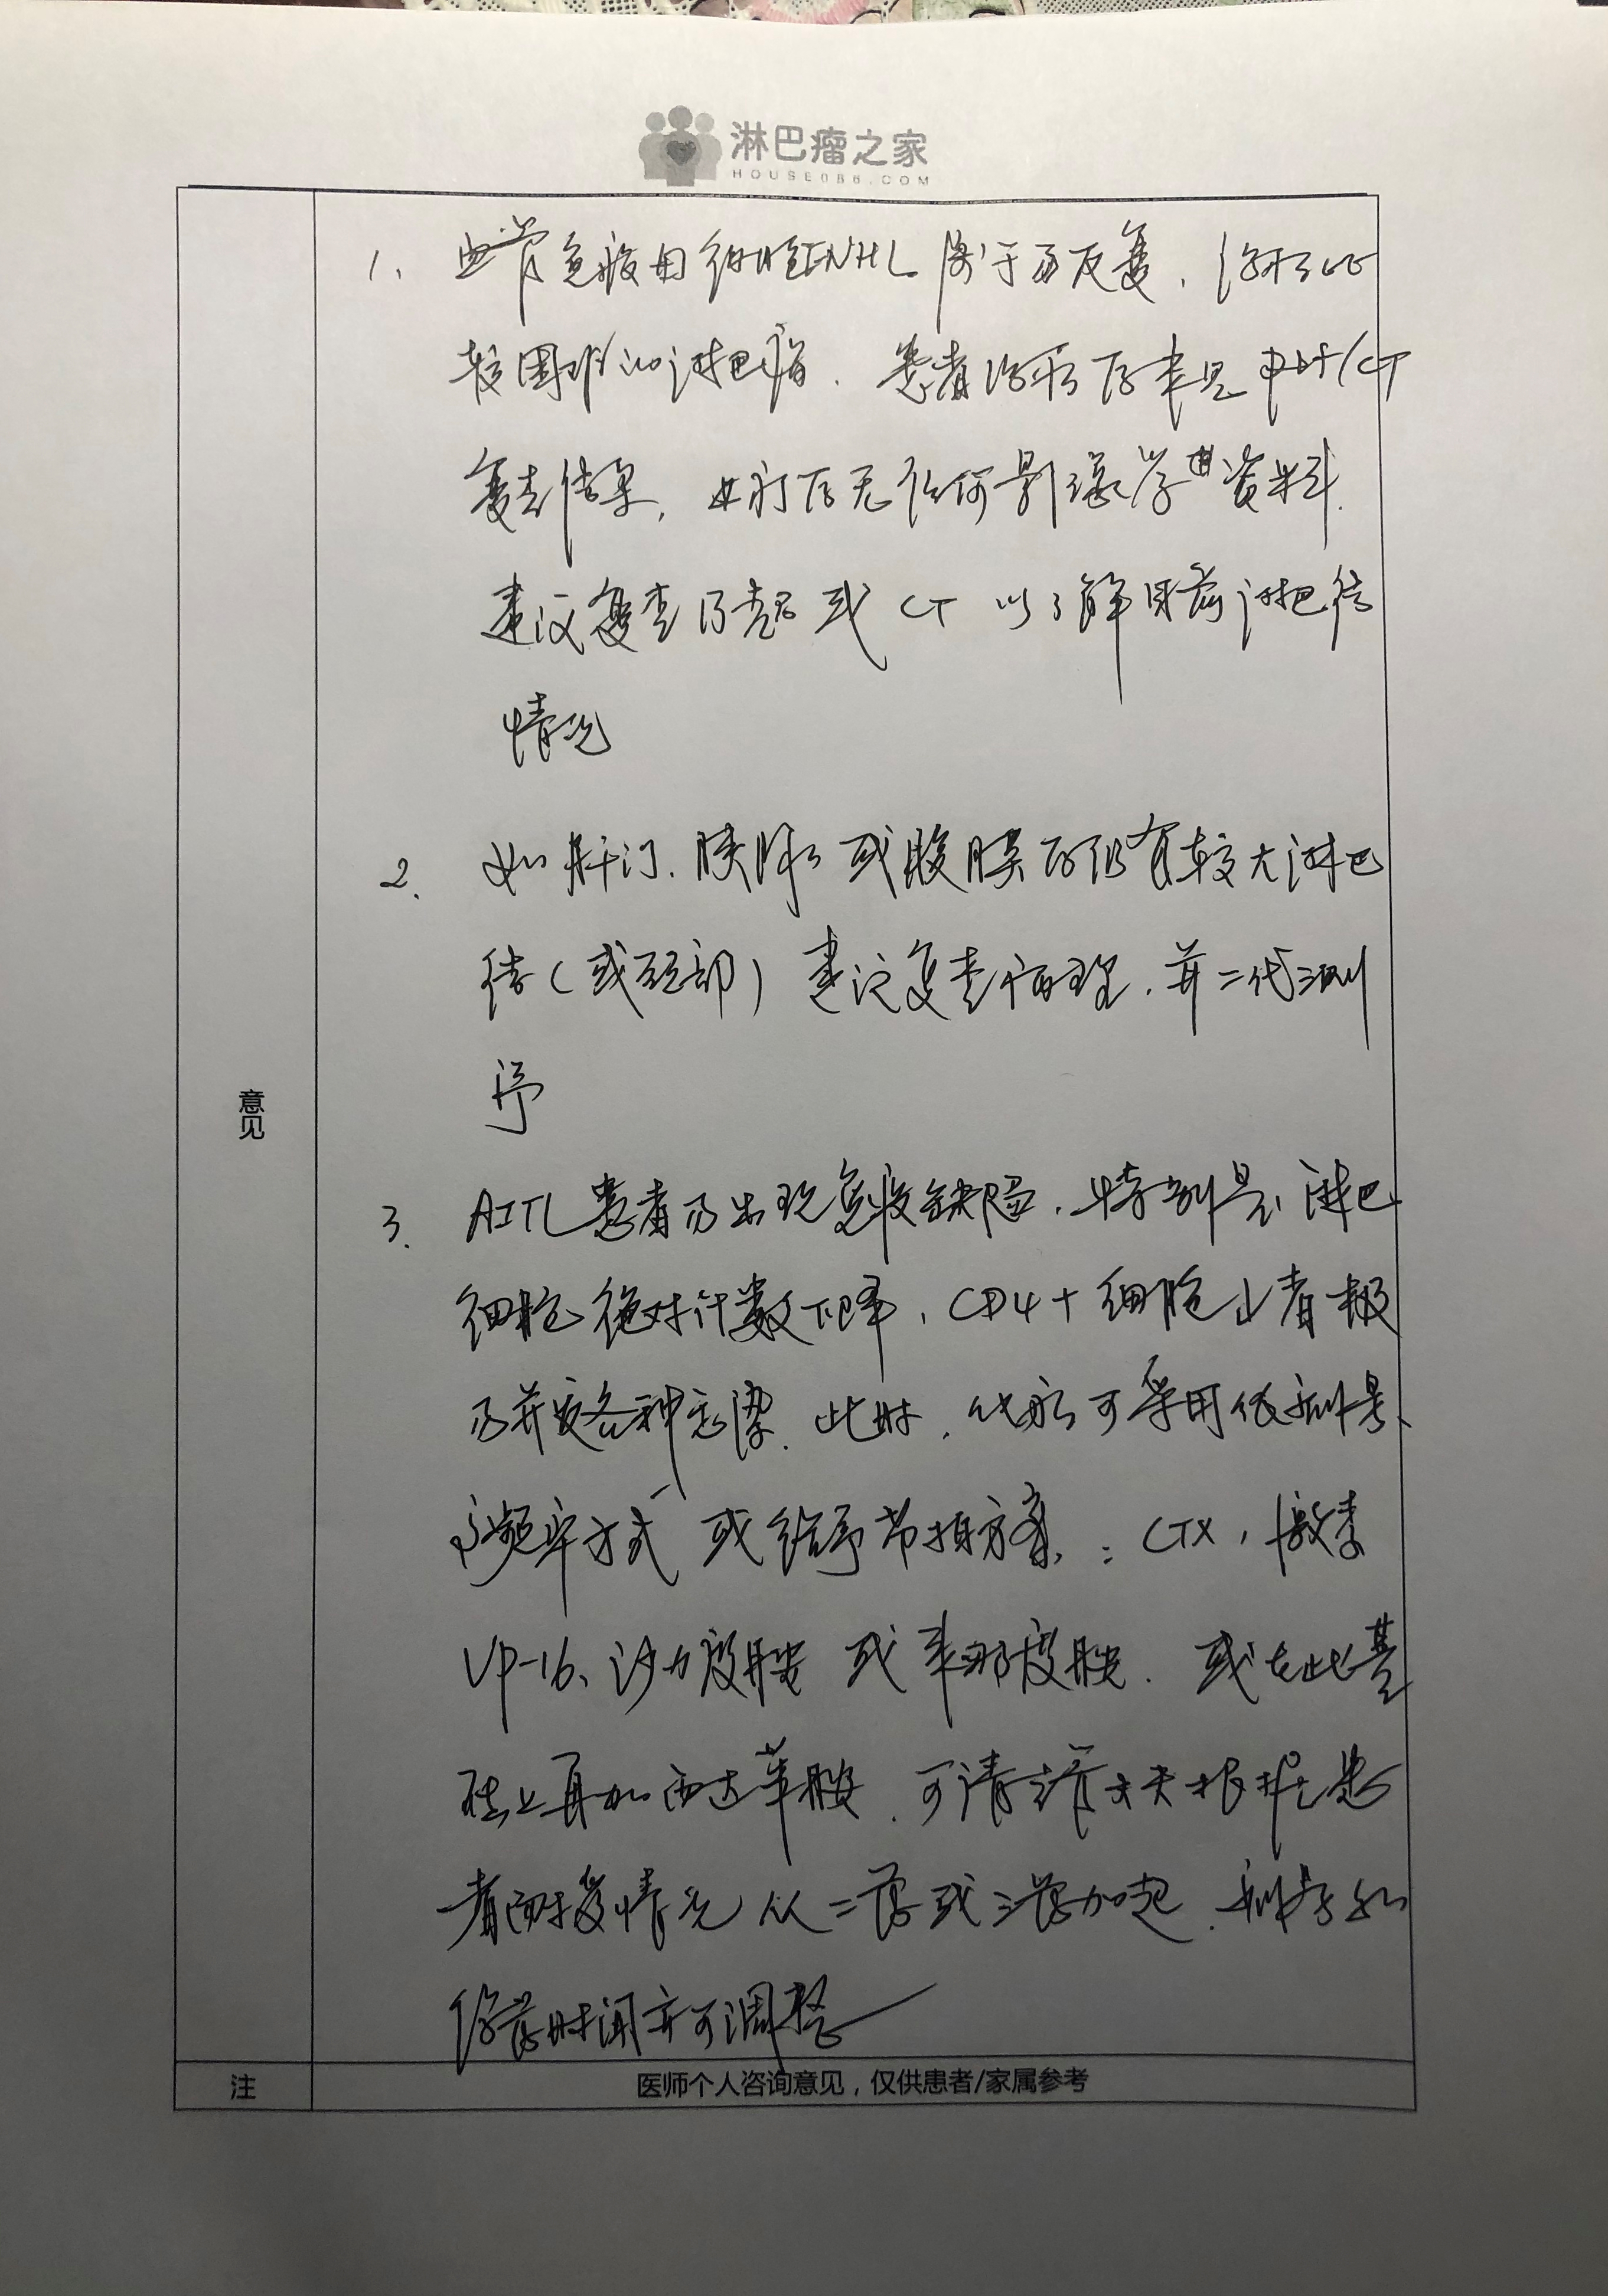 淋巴瘤之家
HOUSE086.COM
1、血管免疫母细胞TNHL属于易反复、治疗比
较困难的淋巴瘤、患者治疗后未见PET/CT
复查结果,如疗后无任何影像学资料、
建议复查B超或CT以了解目前淋巴结
情况
2、如肝门、胰腺或腹膜后仍有较大淋巴
结(或颈部)建议复查病理、并二代测
序
3、AITL患者易出现免疫缺陷、特别是淋巴
细胞绝对计数下降、CD4+细胞↓者极
易并发各种感染、此时、化疗可采用低剂量、
频率方式或给予节拍方案:CTX,激素
VP-16、沙利度胺或来那度胺、或在此基
础上再加西达苯胺、可请主管大夫根据患
者耐受情况从二药或三药加起、剂量和
给药时间亦可调整
意见
注
医师个人咨询意见,仅供患者/家属参考